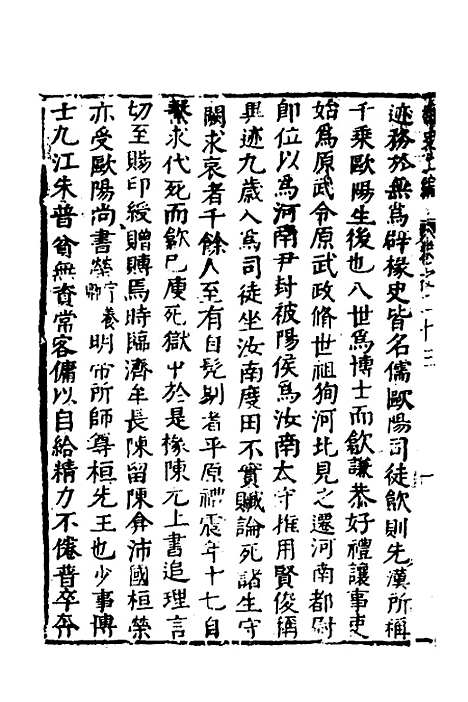 迹務於無為辟掾史皆名儒歐陽司徒歙則先漢所稱
千乘歐陽生後也八世為博士而歙謙恭好禮讓事吏
始為原武令原武政脩世祖狥河北見之遷河南都尉
即位以為河南尹封被陽侯為汝南太守推用賢俊稱
異迹九歲入為司徒坐汝南度田不實贓論死諸生守
闕求哀者千餘人至有自髡剔者平原禮震年十七自
繫求代死而歙已庾死獄中於是掾陳元上書追理言
切至賜印綬贈賻焉時臨濟牟長陳留陳弇沛國桓榮
亦受歐陽尚書榮字春卿明帝所師尊桓先王也少事博
士九江朱普貧無資常客傭以自給精力不倦普卒奔
卷之二十三